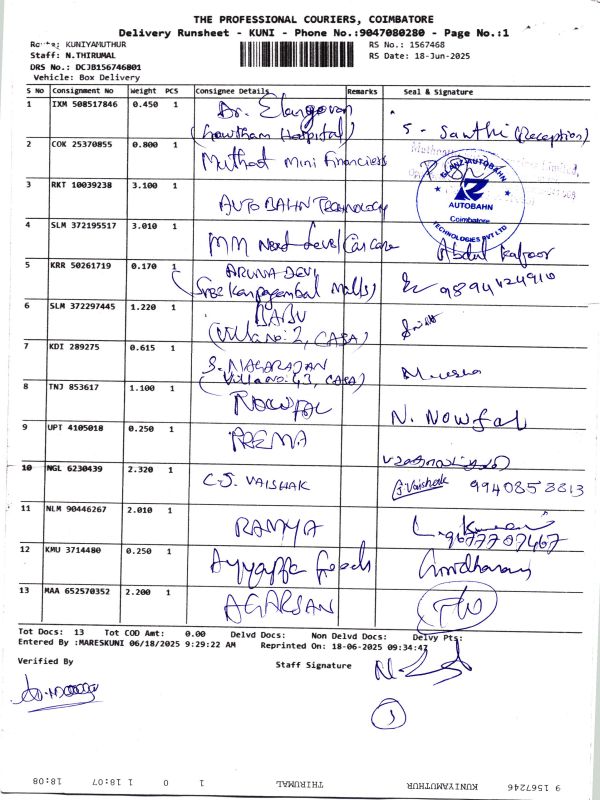 THE PROFESSIONAL COURIERS, COIMBATORE
Delivery Runsheet - KUNI - Phone No.:9047080280 - Page No.:1
Route: KUNIYAMUTHUR RS No.: 1567468
Staff: N.THIRUMAL RS Date: 18-Jun-2025
DRS No.: DCJB156746801
Vehicle: Box Delivery
S No Consignment No Weight PCS Consignee Details Remarks Seal & Signature
1 IXM 508517846 0.450 1 Dr. Elangovan
(Gowtham Hospital) S. Santhi (Reception)
2 COK 25370855 0.800 1 Muthoot Mini Financiers
3 RKT 10039238 3.100 1 AUTO BAHN TECHNOLOGY
GLANZ AUTOBAHN
AUTOBAHN
Coimbatore
TECHNOLOGIES PVT LTD
4 SLM 372195517 3.010 1 MM Next Level Car care Abdul Kafoor
5 KRR 50261719 0.170 1 ARUNA DEVI
(Sree Karpagambal Mills) 9894424910
6 SLM 372297445 1.220 1 BABU
(Villa no: 2, CASA)
7 KDI 289275 0.615 1 S. NAGARAJAN
(Villa no: 43, CASA)
8 TNJ 853617 1.100 1 NOWFAL N. Nowfal
9 UPT 4105018 0.250 1 PREMA
10 NGL 6230439 2.320 1 C.S. VAISHAK 9940858813
11 NLM 90446267 2.010 1 RAMYA
9677707467
12 KMU 3714480 0.250 1 Ayyappa Goods
13 MAA 652570352 2.200 1 AGARSAN
Tot Docs: 13 Tot COD Amt: 0.00 Delvd Docs: Non Delvd Docs: Delvy Pts:
Entered By :MARESKUNI 06/18/2025 9:29:22 AM Reprinted On: 18-06-2025 09:34:47
Verified By Staff Signature
9 1567246 KUNIYAMUTHUR THIRUMAL 1 0 1 18:07 18:08